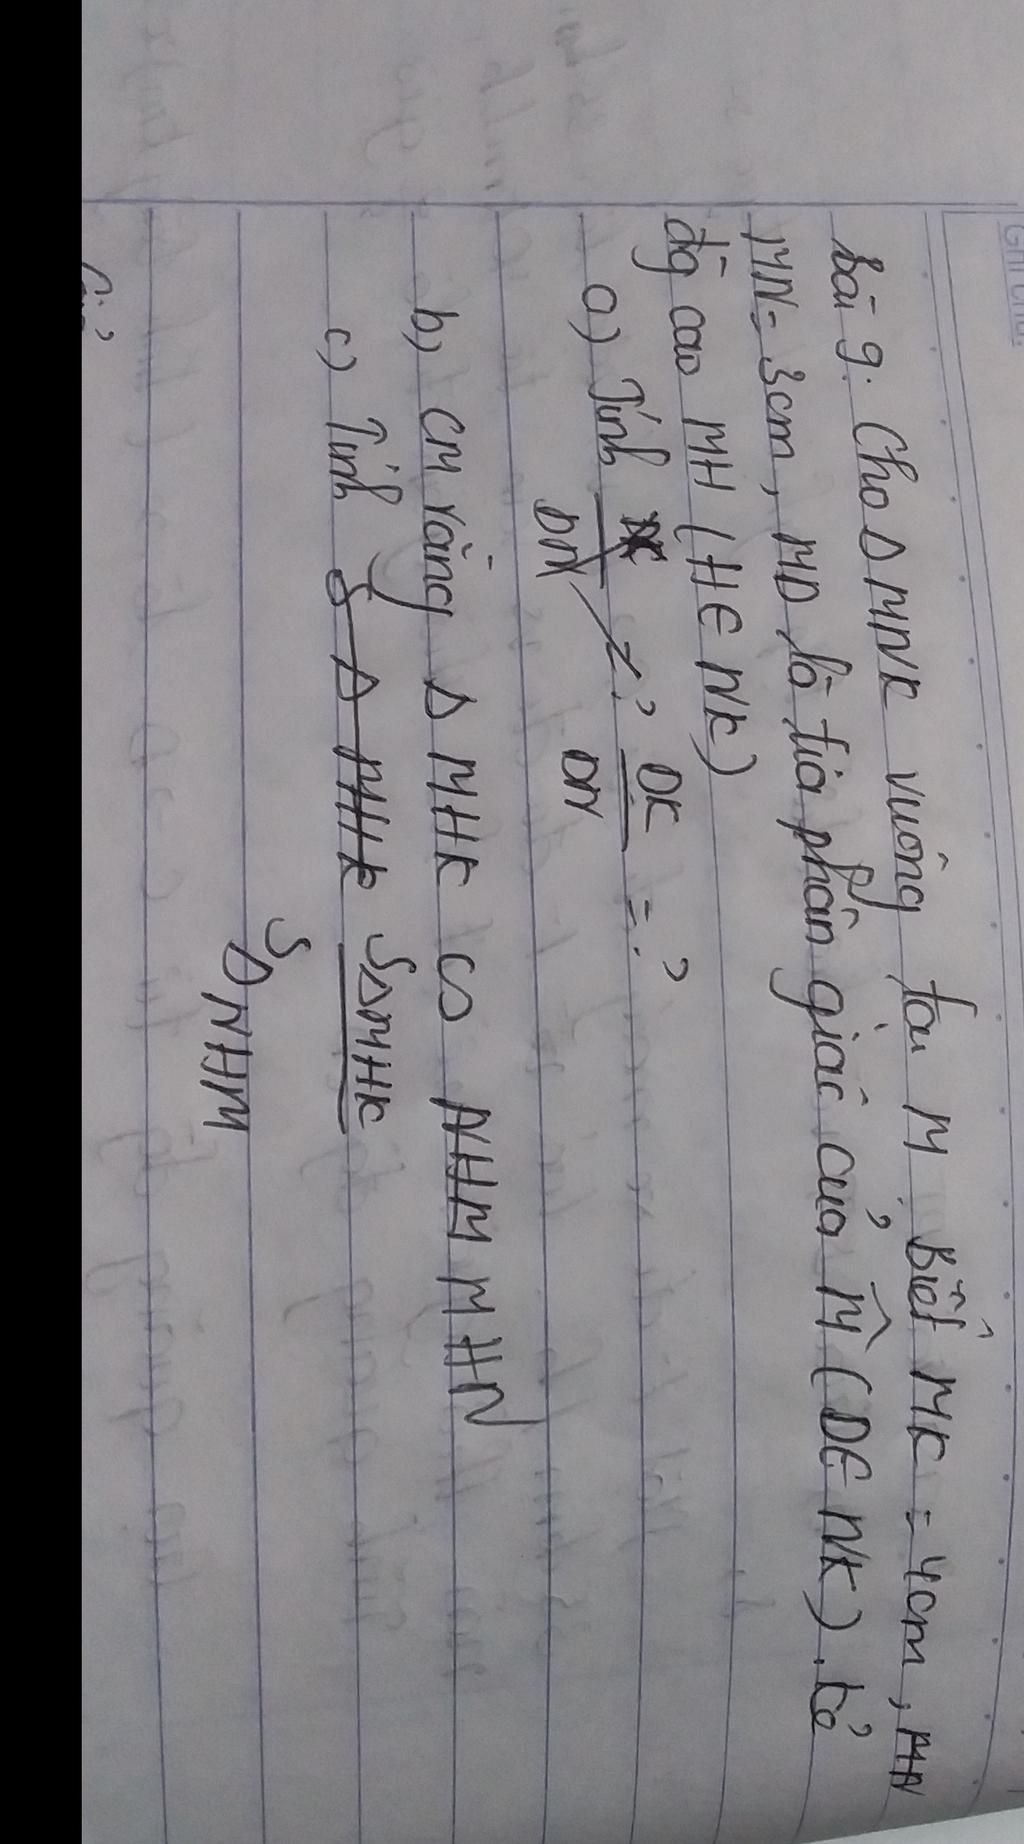 Bài 9. Cho Δ MNK vuông tại M. Biết MK = 4cm, MN
MN = 3cm, MD là tia phân giác của M̂ (D∈ NK). Kẻ
đg cao MH (H ∈ NK)
a) Tính DK/DN = ? DK/DN = ?
b) CM rằng Δ MHK ∽ NHM MHN
c) Tính S Δ MHK SΔMHK
SΔNHM